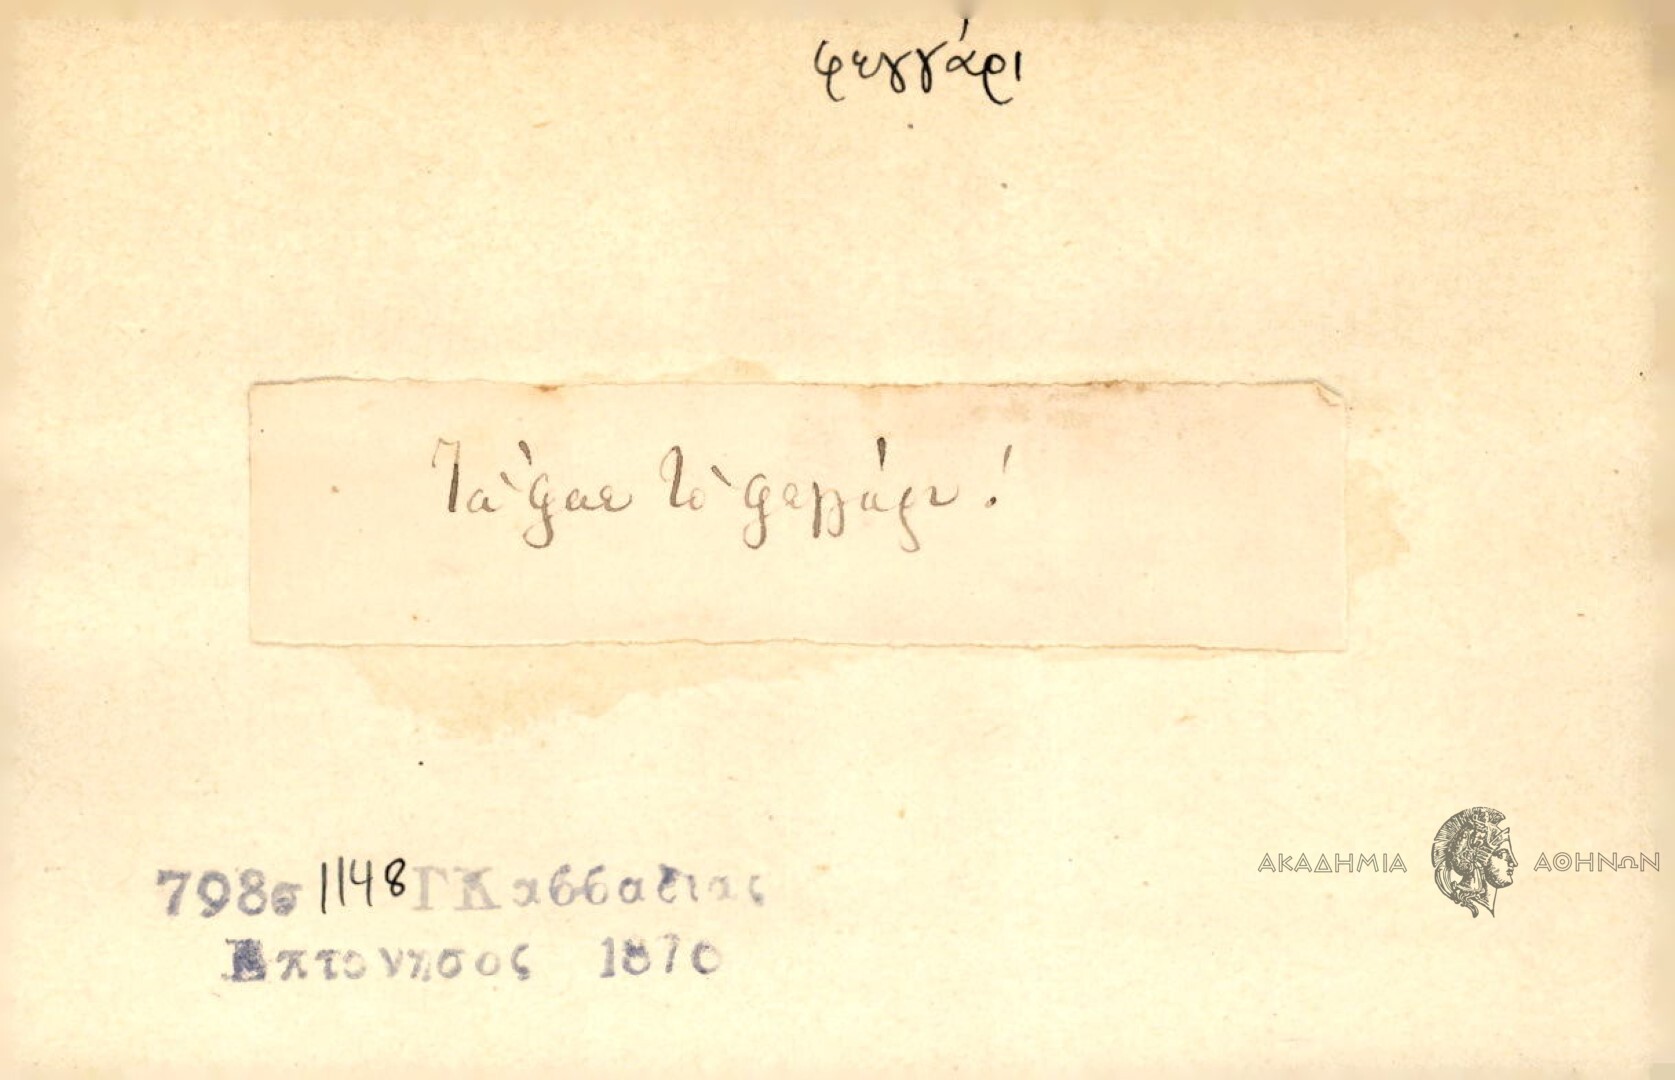 φεγγάρι
Τἄφαε τὸ φεγγάρι!
798σ 1148 Γ Καββαδιας
Επτονησος 1870
ΑΚΑΔΗΜΙΑ ΑΘΗΝΩΝ